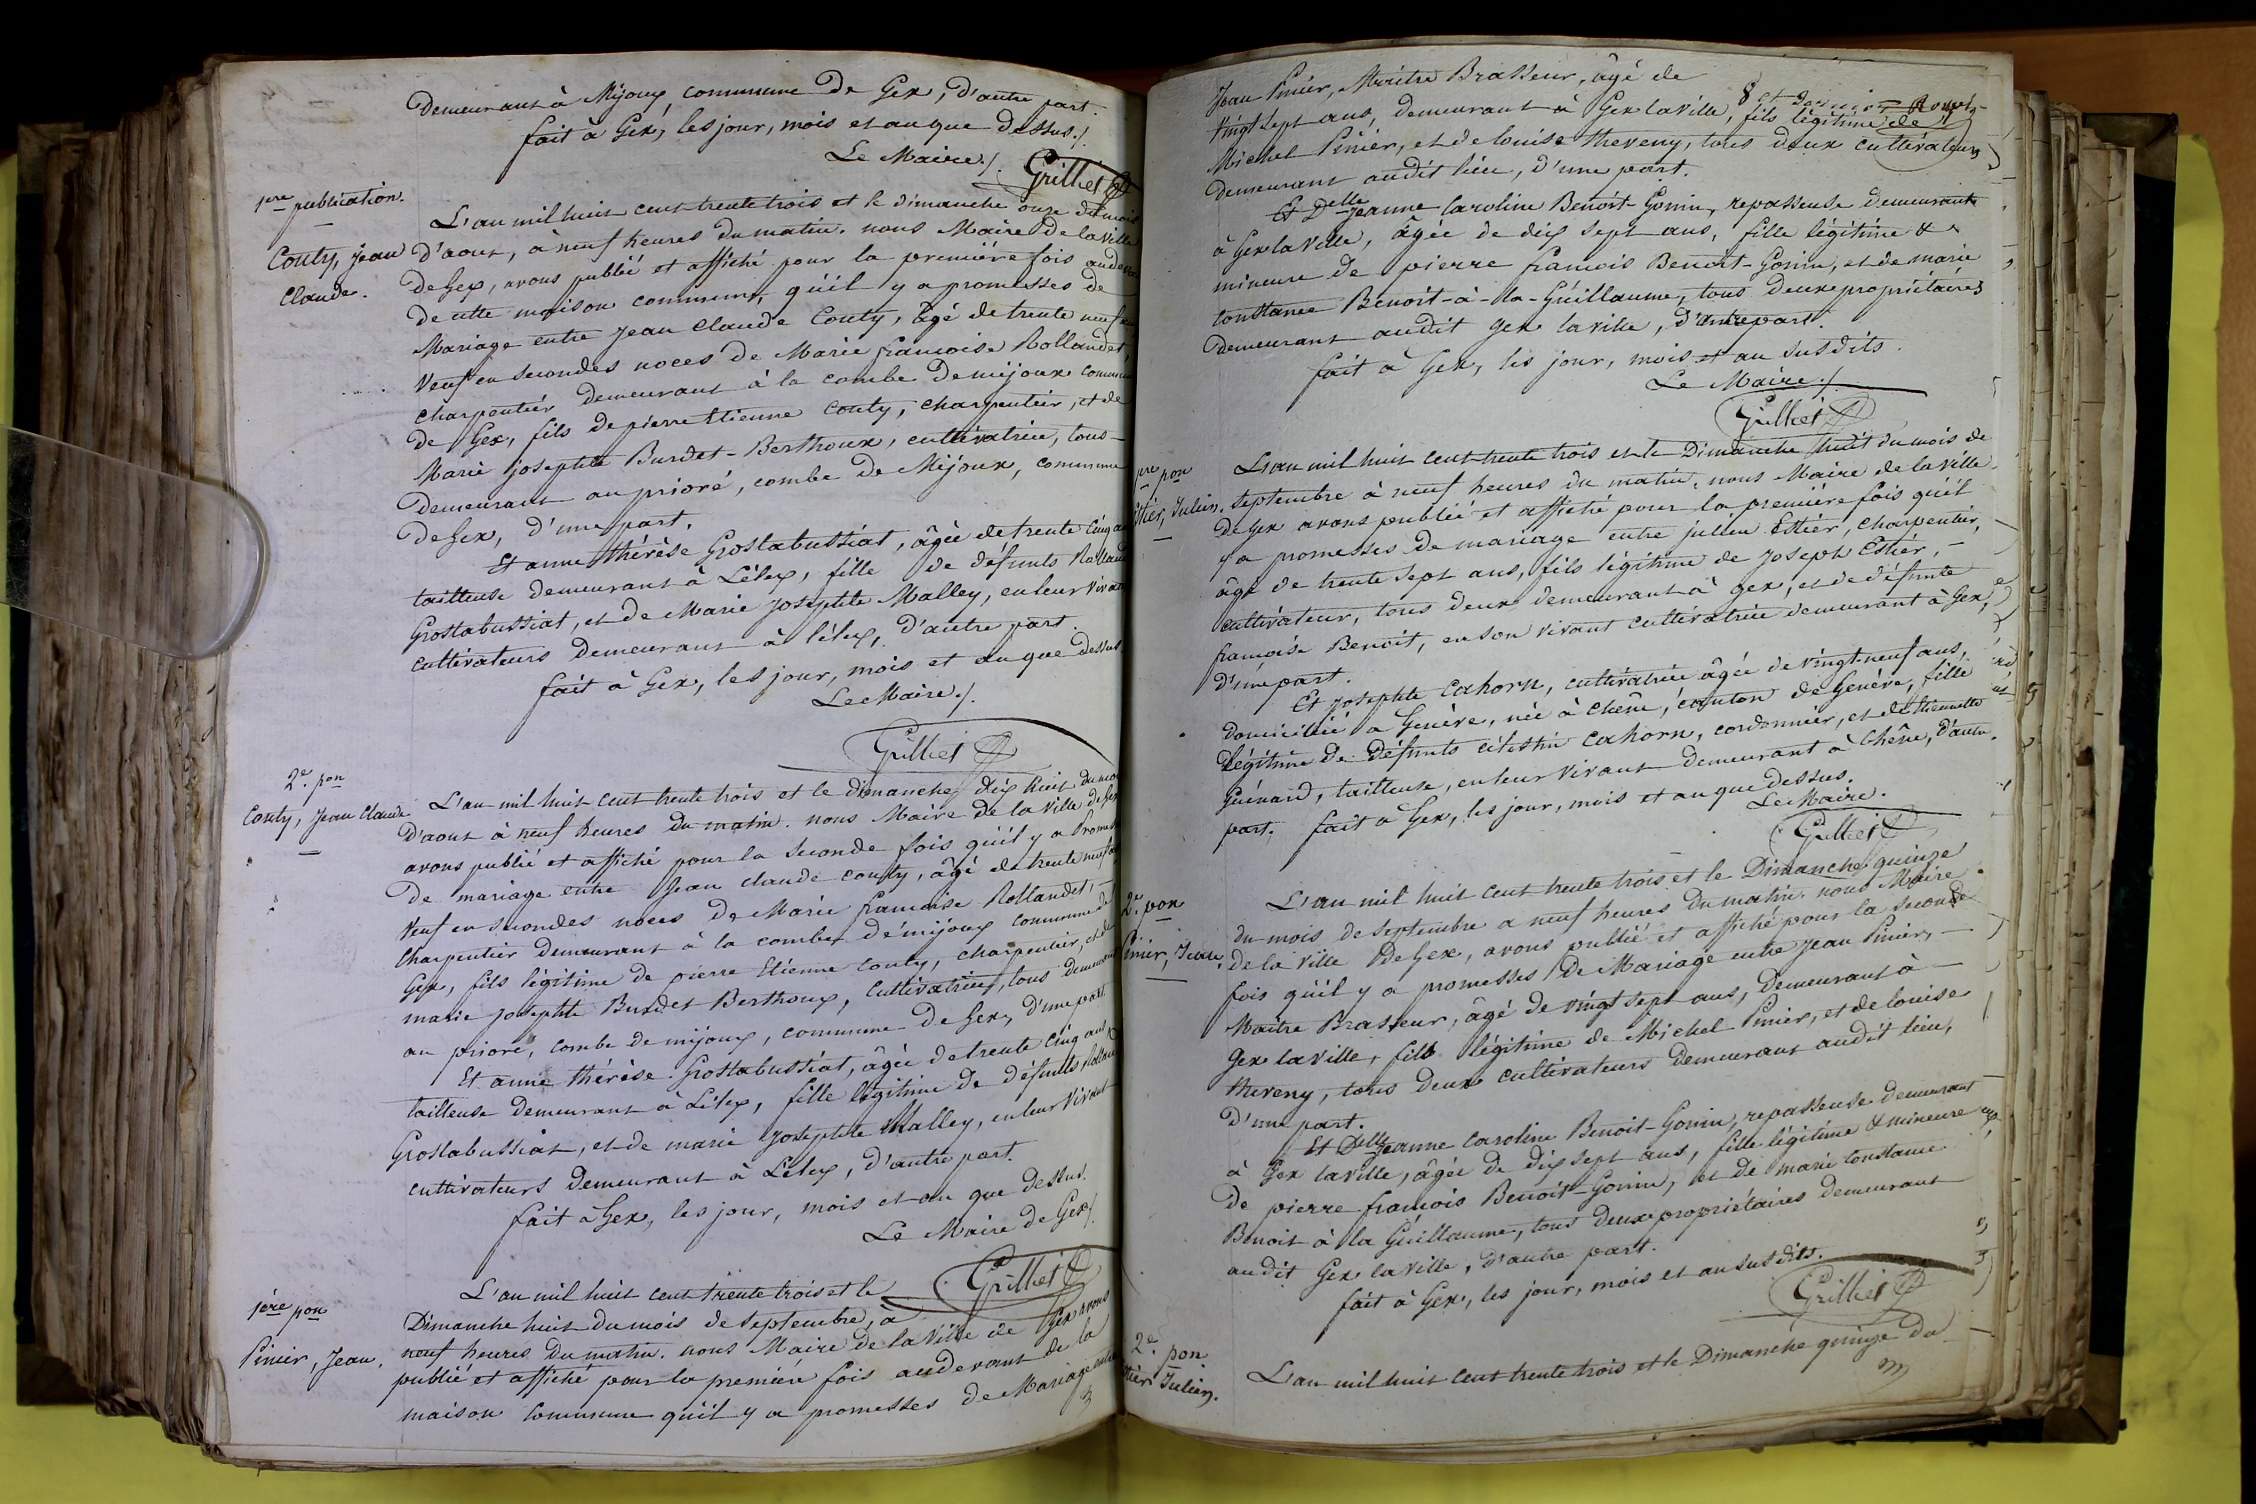 demeurant à Mijoux, commune de Gex, d'autre part.
fait à Gex, les jour, mois et an que dessus./.
Le Maire./. Grilliet
1ere publication.
Couty, Jean
Claude.
L'an mil huit cent trente trois et le dimanche onze du mois
d'aout, à neuf heures du matin. nous Maire de la ville
de Gex, avons publié et affiché pour la première fois audevant
de cette maison commune, qu'il y a promesses de
Mariage entre Jean Claude Couty, âgé de trente neuf
Veuf en secondes noces de Marie françoise Rollandet,
charpentier demeurant à la combe de mijoux commune
de Gex, fils de pierre Etienne Couty, charpentier, et de
Marie josephte Burdet-Berthoux, cultivatrice, tous
demeurant au prioré, combe de Mijoux, commune
de Gex, d'une part.
Et anne thérèse Groslabussiat, âgée de trente cinq
tailleuse demeurant à Lélex, fille de défunts
Groslabussiat, et de Marie josephte Malley, en leur
cultivateurs demeurant à lélex, d'autre part.
fait à Gex, les jour, mois et an que dessus
Le Maire./.
Grilliet
2e. pon
Couty, Jean Claude
L'an mil huit cent trente trois et le dimanche dix huit du
d'aout à neuf heures du matin. nous Maire de la ville de Gex
avons publié et affiché pour la seconde fois qu'il y a
de mariage entre Jean claude couty, âgé de trente neuf
Veuf en secondes noces de Marie francoise Rollandet,
charpentier demeurant à la combe de mijoux commune de
Gex, fils légitime de pierre Etienne Couty, charpentier, et de
marie josephte Burdet Berthoux, cultivatrice, tous
au prioré, combe de mijoux, commune de Gex, d'une part.
Et anne thérèse Groslabussiat, âgée de trente cinq ans
tailleuse demeurant à Lélex, fille légitime de défunts
Groslabussiat, et de marie josephte Malley, en leur vivant
cultivateurs demeurant à Lélex, d'autre part.
fait à Gex, les jour, mois et an que dessus.
Le Maire de Gex/.
Grilliet
1ere pon
Pinier, Jean.
L'an mil huit cent trente trois et le
Dimanche huit du mois de septembre, à
neuf heures du matin. nous Maire de la Ville de Gex avons
publié et affiché pour la première fois audevant de la
maison commune qu'il y a promesses de Mariage entre
Jean Pinier, Maitre Brasseur, âgé de
Vingt sept ans, demeurant à Gex la ville, fils légitime de
Michel Pinier, et de louise theveny, tous deux cultivateurs
demeurant audit lieu, d'une part.
Et Delle Jeanne Caroline Benoit-Gonin, repasseuse demeurant
à Gex la Ville, âgée de dix sept ans, fille légitime &
mineure de pierre francois Benoit-Gonin, et de marie
Constance Benoit-à-la-Guillaume, tous deux propriétaires
demeurant audit gex la ville, d'autre part.
fait à Gex, les jour, mois et an susdits.
Le Maire./.
Grilliet
1re pon
Julien.
L'an mil huit cent trente trois et le Dimanche huit du mois de
septembre à neuf heures du matin. nous Maire de la Ville
de Gex avons publié et affiché pour la première fois qu'il
y a promesses de mariage entre julien Ettier, charpentier,
âgé de trente sept ans, fils légitime de joseph Ettier,
cultivateur, tous deux demeurant à gex, et de défunte
françoise Benoit, en son vivant cultivatrice demeurant à Gex,
d'une part.
Et josephte Cahorn, cultivatrice âgée de vingt-neuf ans,
domiciliée à Genève, née à Chêne, canton de Genève, fille
légitime de défunts célestin Cahorn, cordonnier, et de thiennette
Guénard, tailleuse, en leur vivant demeurant à Chêne, d'autre
part. fait à Gex, les jour, mois et an que dessus.
Le Maire.
Grilliet
2e. pon
Pinier, Jean.
L'an mil huit cent trente trois et le Dimanche quinze
du mois de septembre a neuf heures du matin. nous Maire
de la ville de Gex, avons publié et affiché pour la seconde
fois qu'il y a promesses de Mariage entre Jean Pinier,
Maitre Brasseur, âgé de vingt sept ans, demeurant à
Gex la Ville, fils légitime de Michel Pinier, et de louise
theveny, tous deux cultivateurs demeurant audit lieu,
D'une part.
Et Delle Jeanne Caroline Benoit-Gonin, repasseuse demeurant
à Gex la ville, âgée de dix sept ans, fille légitime & mineure
de pierre francois Benoit-Gonin, et de marie Constance
Benoit à la Guillaume, tous deux propriétaires demeurant
audit Gex la Ville, d'autre part.
fait à Gex, les jour, mois et an susdits.
Grilliet
2e. pon
Julien.
L'an mil huit cent trente trois et le Dimanche quinze du